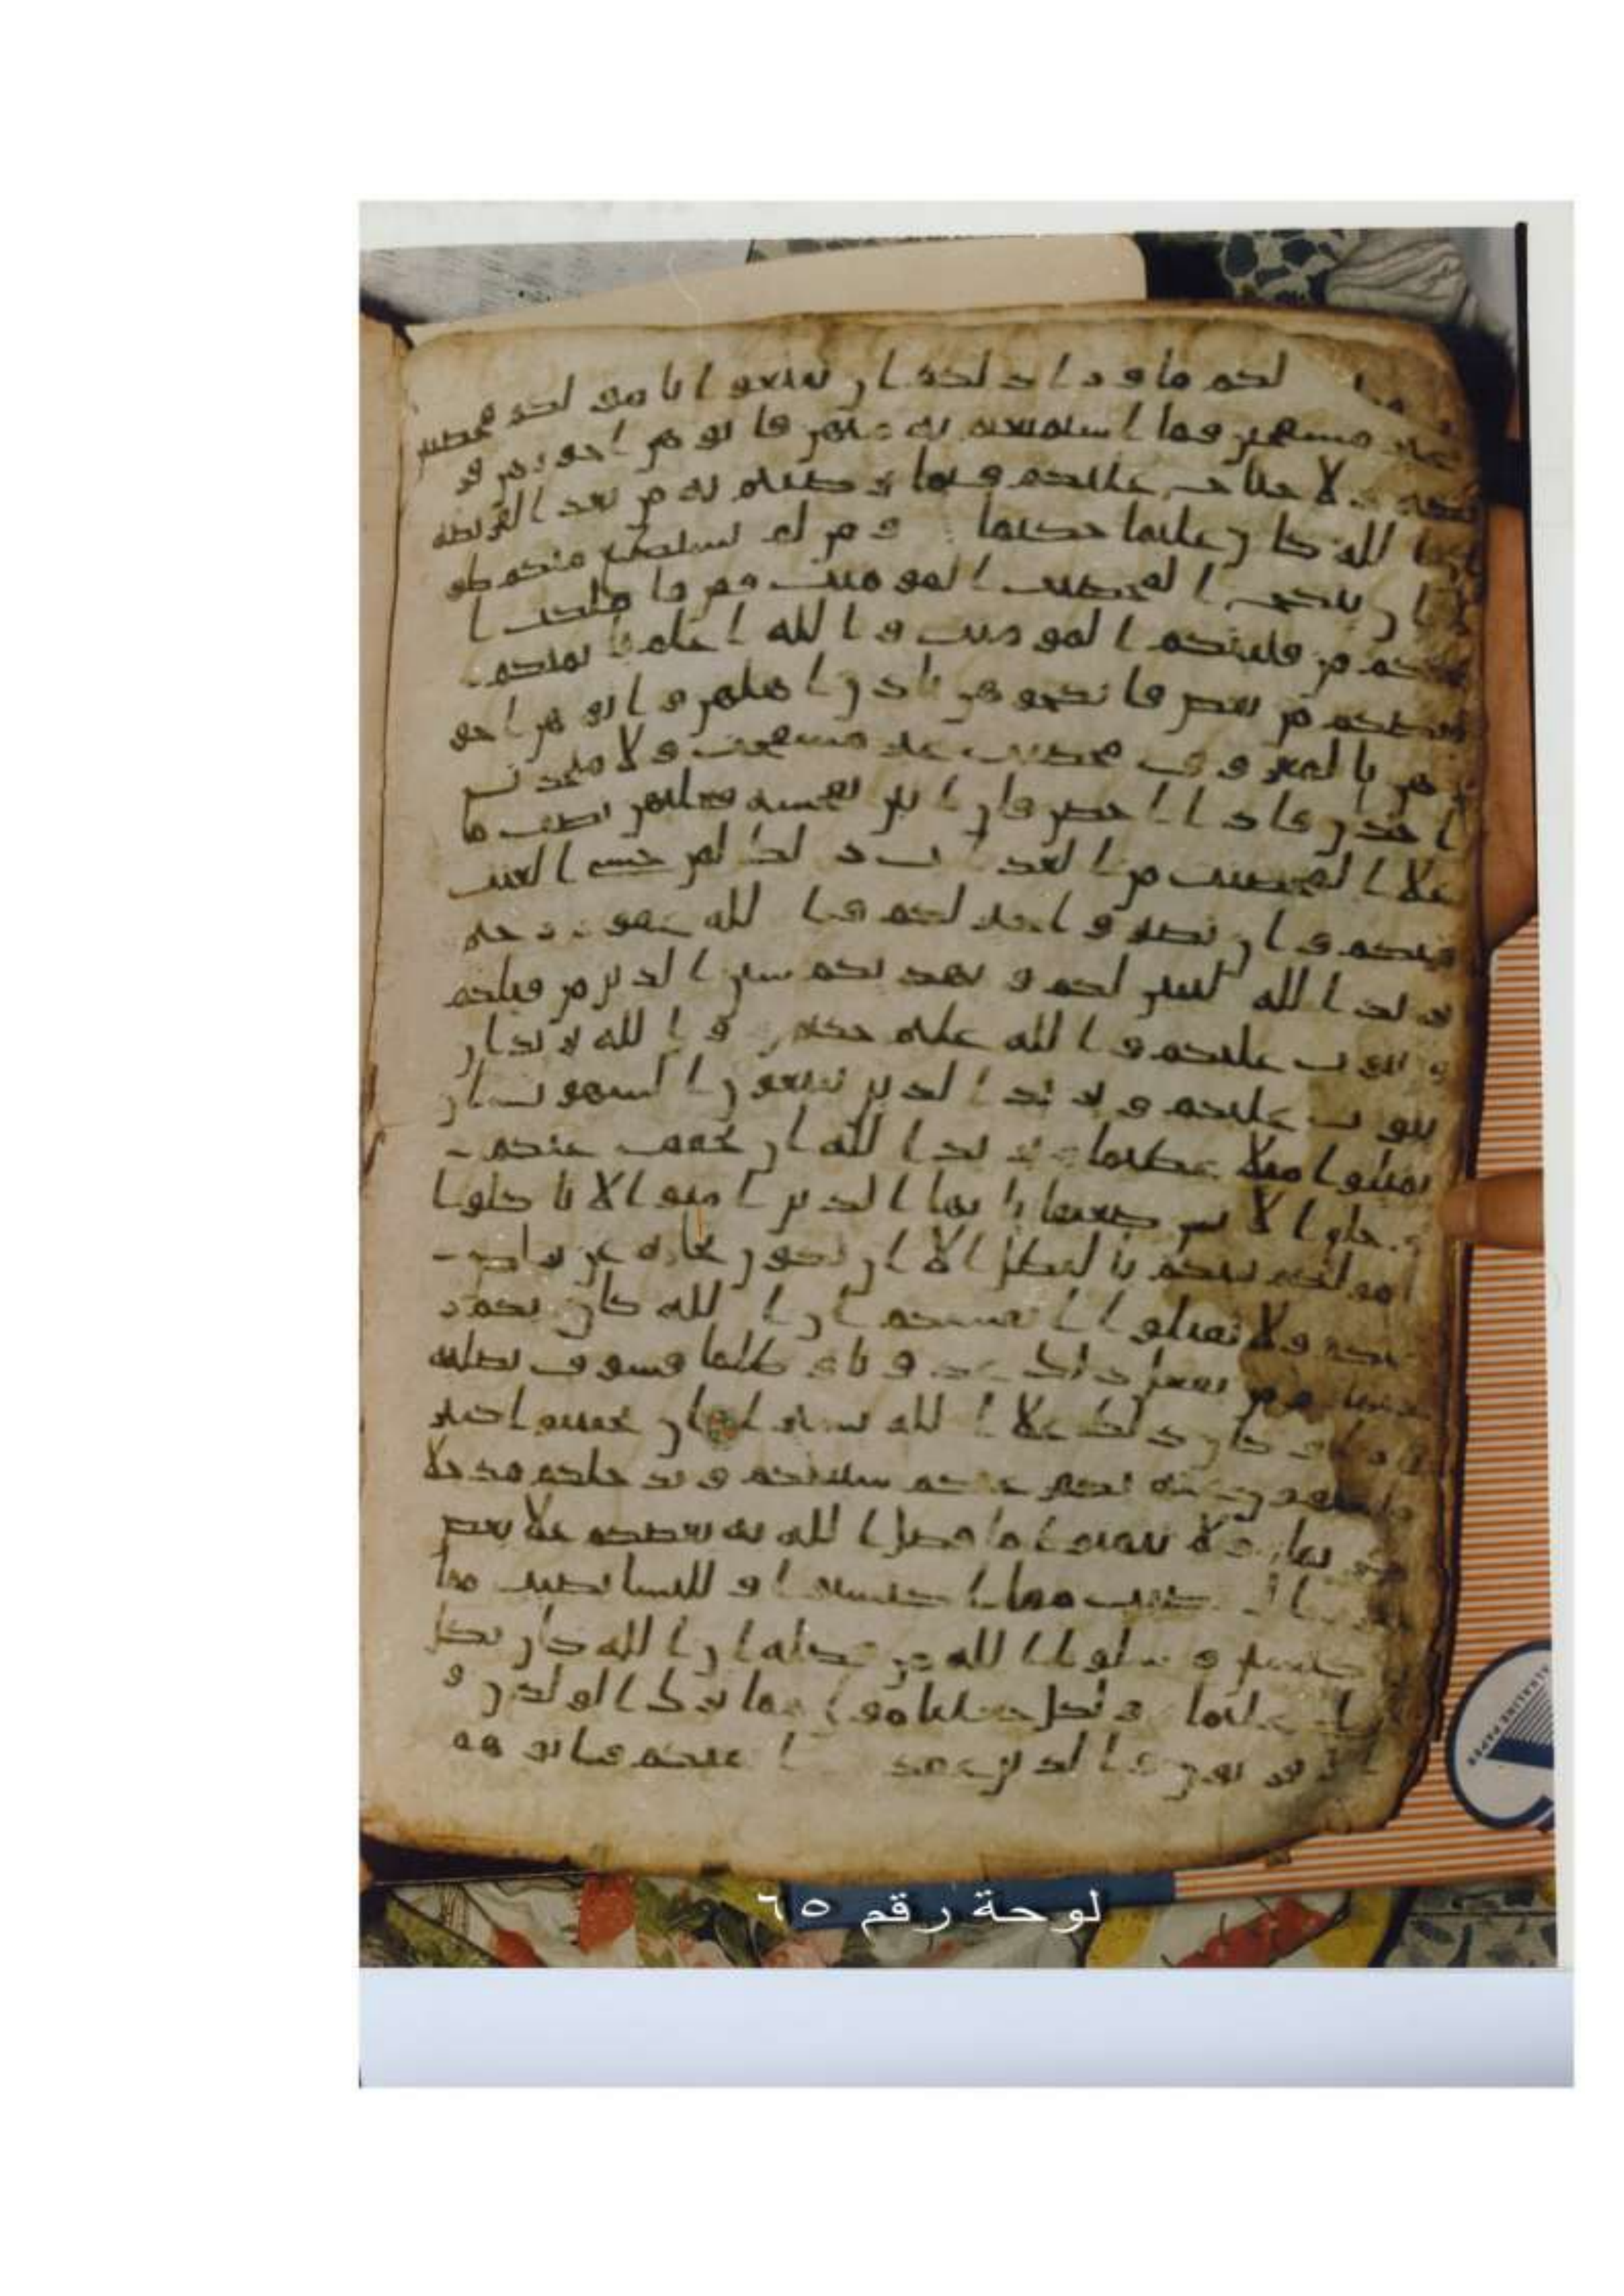 لكم ما ورا ذلكم ان تبتغوا بامولكم محصنين
غير مسفحين فما استمتعتم به منهن فاتوهن اجورهن فر
يضة ولا جناح عليكم فيما ترضيتم به من بعد الفريضة
ان الله كان عليما حكيما ومن لم يستطع منكم طو
لا ان ينكح المحصنت المومنت فمن ما ملكت ا
يمنكم من فتيتكم المومنت والله اعلم بايمنكم
بعضكم من بعض فانكحوهن باذن اهلهن واتوهن اجو
رهن بالمعروف محصنت غير مسفحت ولا متخذت
اخدن فاذا احصن فان اتين بفحشة فعليهن نصف ما
على المحصنت من العذاب ذلك لمن خشي العنت
منكم وان تصبروا خير لكم والله غفور رحيم
يريد الله ليبين لكم ويهديكم سنن الذين من قبلكم
ويتوب عليكم والله عليم حكيم والله يريد ان
يتوب عليكم ويريد الذين يتبعون الشهوت ان
تميلوا ميلا عظيما يريد الله ان يخفف عنكم
وخلق الانسن ضعيفا يايها الذين امنوا لا تاكلوا
امولكم بينكم بالبطل الا ان تكون تجرة عن تراض
منكم ولا تقتلوا انفسكم ان الله كان بكم ر
حيما ومن يفعل ذلك وظلما فسوف نصليه
نارا وكان ذلك على الله يسيرا ان تجتنبوا كبير
ما تنهون عنه نكفر عنكم سياتكم وندخلكم مدخلا
كريما ولا تتمنوا ما فضل الله به بعضكم على بعض
نصيب مما اكتسبوا وللنسا نصيب مما
اكتسبن وسلوا الله من فضله ان الله كان بكل
شي عليما ولكل جعلنا مولي مما ترك الولدن و
الاقربون والذين عقدت فاتوهم
لوحة رقم ٦٥